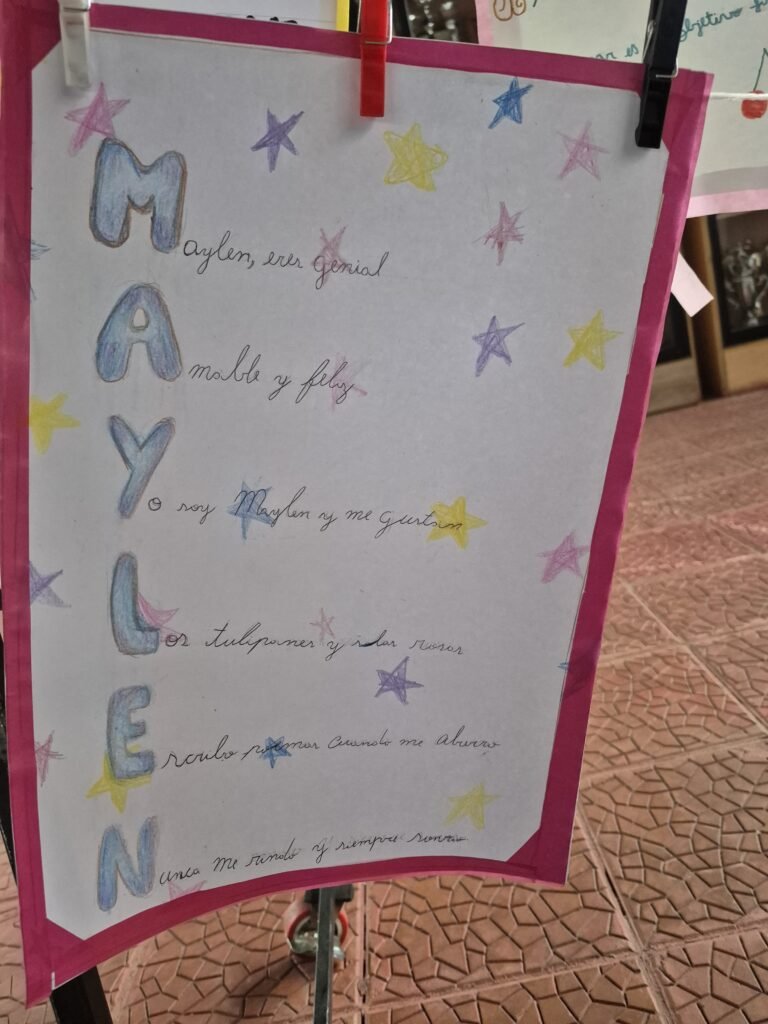 ar es objetivo
Maylen, eres genial
Amable y feliz
Yo soy Maylen y me gustan
Los tulipanes y las rosas
Escribo poemas Cuando me aburro
Nunca me rindo y siempre